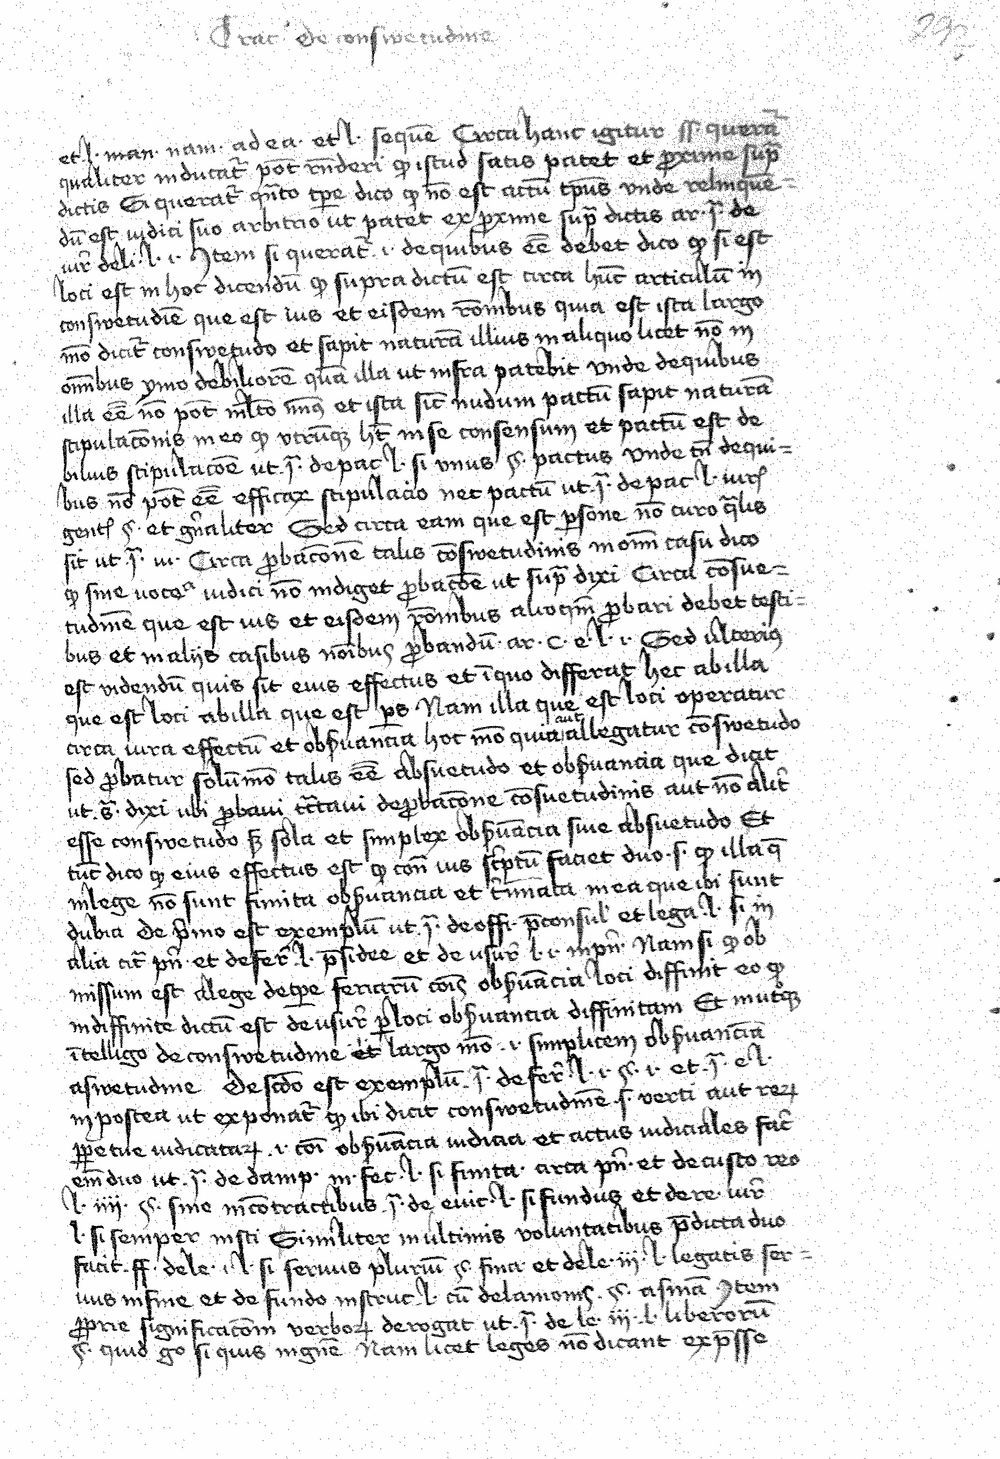 Trac de conswetudine
et l. man. nam. ad ea. et l. sequē Circa hanc igitur ff. querat̄
qualiter inducat̄ pōt rn̄deri qp istud satis patet et proxime sup̄
dictis Si querat̄ qn̄to tpe dico qp nō est actū tp̄us vnde relinquē=
dū est iudici suo arbitrio ut patet ex proxime sup̄ dictis ar. j̄. de
iur̄ deli. l. i. Item si querat̄ .i. de quibus eē debet dico qp si est
loci est in hoc dicendū qp supra dictū est circa hūc articulū in
conswetudīe que est ius et eisdem rōnibus quia est ista largo
mō dicit̄ conswetudo et sapit naturā illius in aliquo licet nō in
oīnibus ymo debiliorē quā illa ut infra patebit vnde de quibus
illa eē nō pōt ml̄to min9 et ista sic̄ nudum pactū sapit naturā
stipulacōnis in eo qp vtrūqz h̄t in se consensum et pactū est de
bilius stipulacōe ut. j̄. de pac l. si vnus §. pactus vnde tn̄ de qui=
bus nō pōt eē efficax stipulacio nec pactū ut. j̄. de pac l. iur
gent §. et gn̄aliter Sed circa eam que est psone nō curo qlis
sit ut. j̄. iii. Circa probaconē talis cōswetudinis in om̄i casu dico
qp siue uocer iudici nō indiget probacōe ut sup̄ dixi Circa cōsue=
tudinē que est ius et eisdem rōnibus alioqin probari debet testi=
bus et in aliis casibus nōibus probandū. ar. c. e. l. i. Sed ulterius
est videndū quis sit eius effectus et ī quo differat hec ab illa
que est loci ab illa que est ps Nam illa que est loci operatur
circa iura effectū et obseruancia hoc mō quia aut allegatur cōswetudo
sed probatur solūmō talis eē absuetudo et obseruancia que dicit
ut. s̄. dixi ubi probaui tc̄taui de probacone cōsuetudinis aut nō alit̄
esse conswetudo sz sola et simplex obseruācia siue absuetudo Et
tūc dico qp eius effectus est qp con̄ ius scptū faciet duo. s. qp illa q̄
in lege nō sunt finita obseruancia et t̄minata in ea que ibi sunt
dubia De primo est exemplū ut. j̄. de offi. p̄consul et lega. l. si in
alia cit̄ pn̄. et de fer̄. l. p̄sidee et de usur̄ l. i. in pn̄. Nam si qp ob
missum est a lege de tpe feriarū cōis obseruācia loci diffinit eo qp
indiffinite dictū est de usur̄ p loci obseruancia diffinitam Et in utqz
ītelligo de conswetudine et largo mō .i. simplicem obseruanciā
aswetudine De scdo est exemplū. j̄. de fer̄. l. i. §. i. et. j̄. e l.
in postea ut exponat̄ qp ibi dicit conswetudinē. s. verti aut rerꝝ
ppetue iudicatarꝝ .i. coi obseruācia iudicia et actus iudiciales fac̄
em̄ duo ut. j̄. de damp. in fec. l. si finita. circa pn̄. et de custo reo
l. iiii. §. siue in cōtractibus j̄. de euic. l. si fundus et de re. iur̄
l. si semper in sti Similiter in ultimis voluntatibus p̄dicta duo
facit. ff. de le. i l. si seruus pluriū §. fina et de le. iii. l. legatis ser=
uus in fine et de fundo instruc. l. cū de lanionis. §. asinā. Item
proprie significacōm verborꝝ derogat ut. j̄. de le. iii. l. liberorū
§. quid go si quis in gn̄e Nam licet leges nō dicant expresse